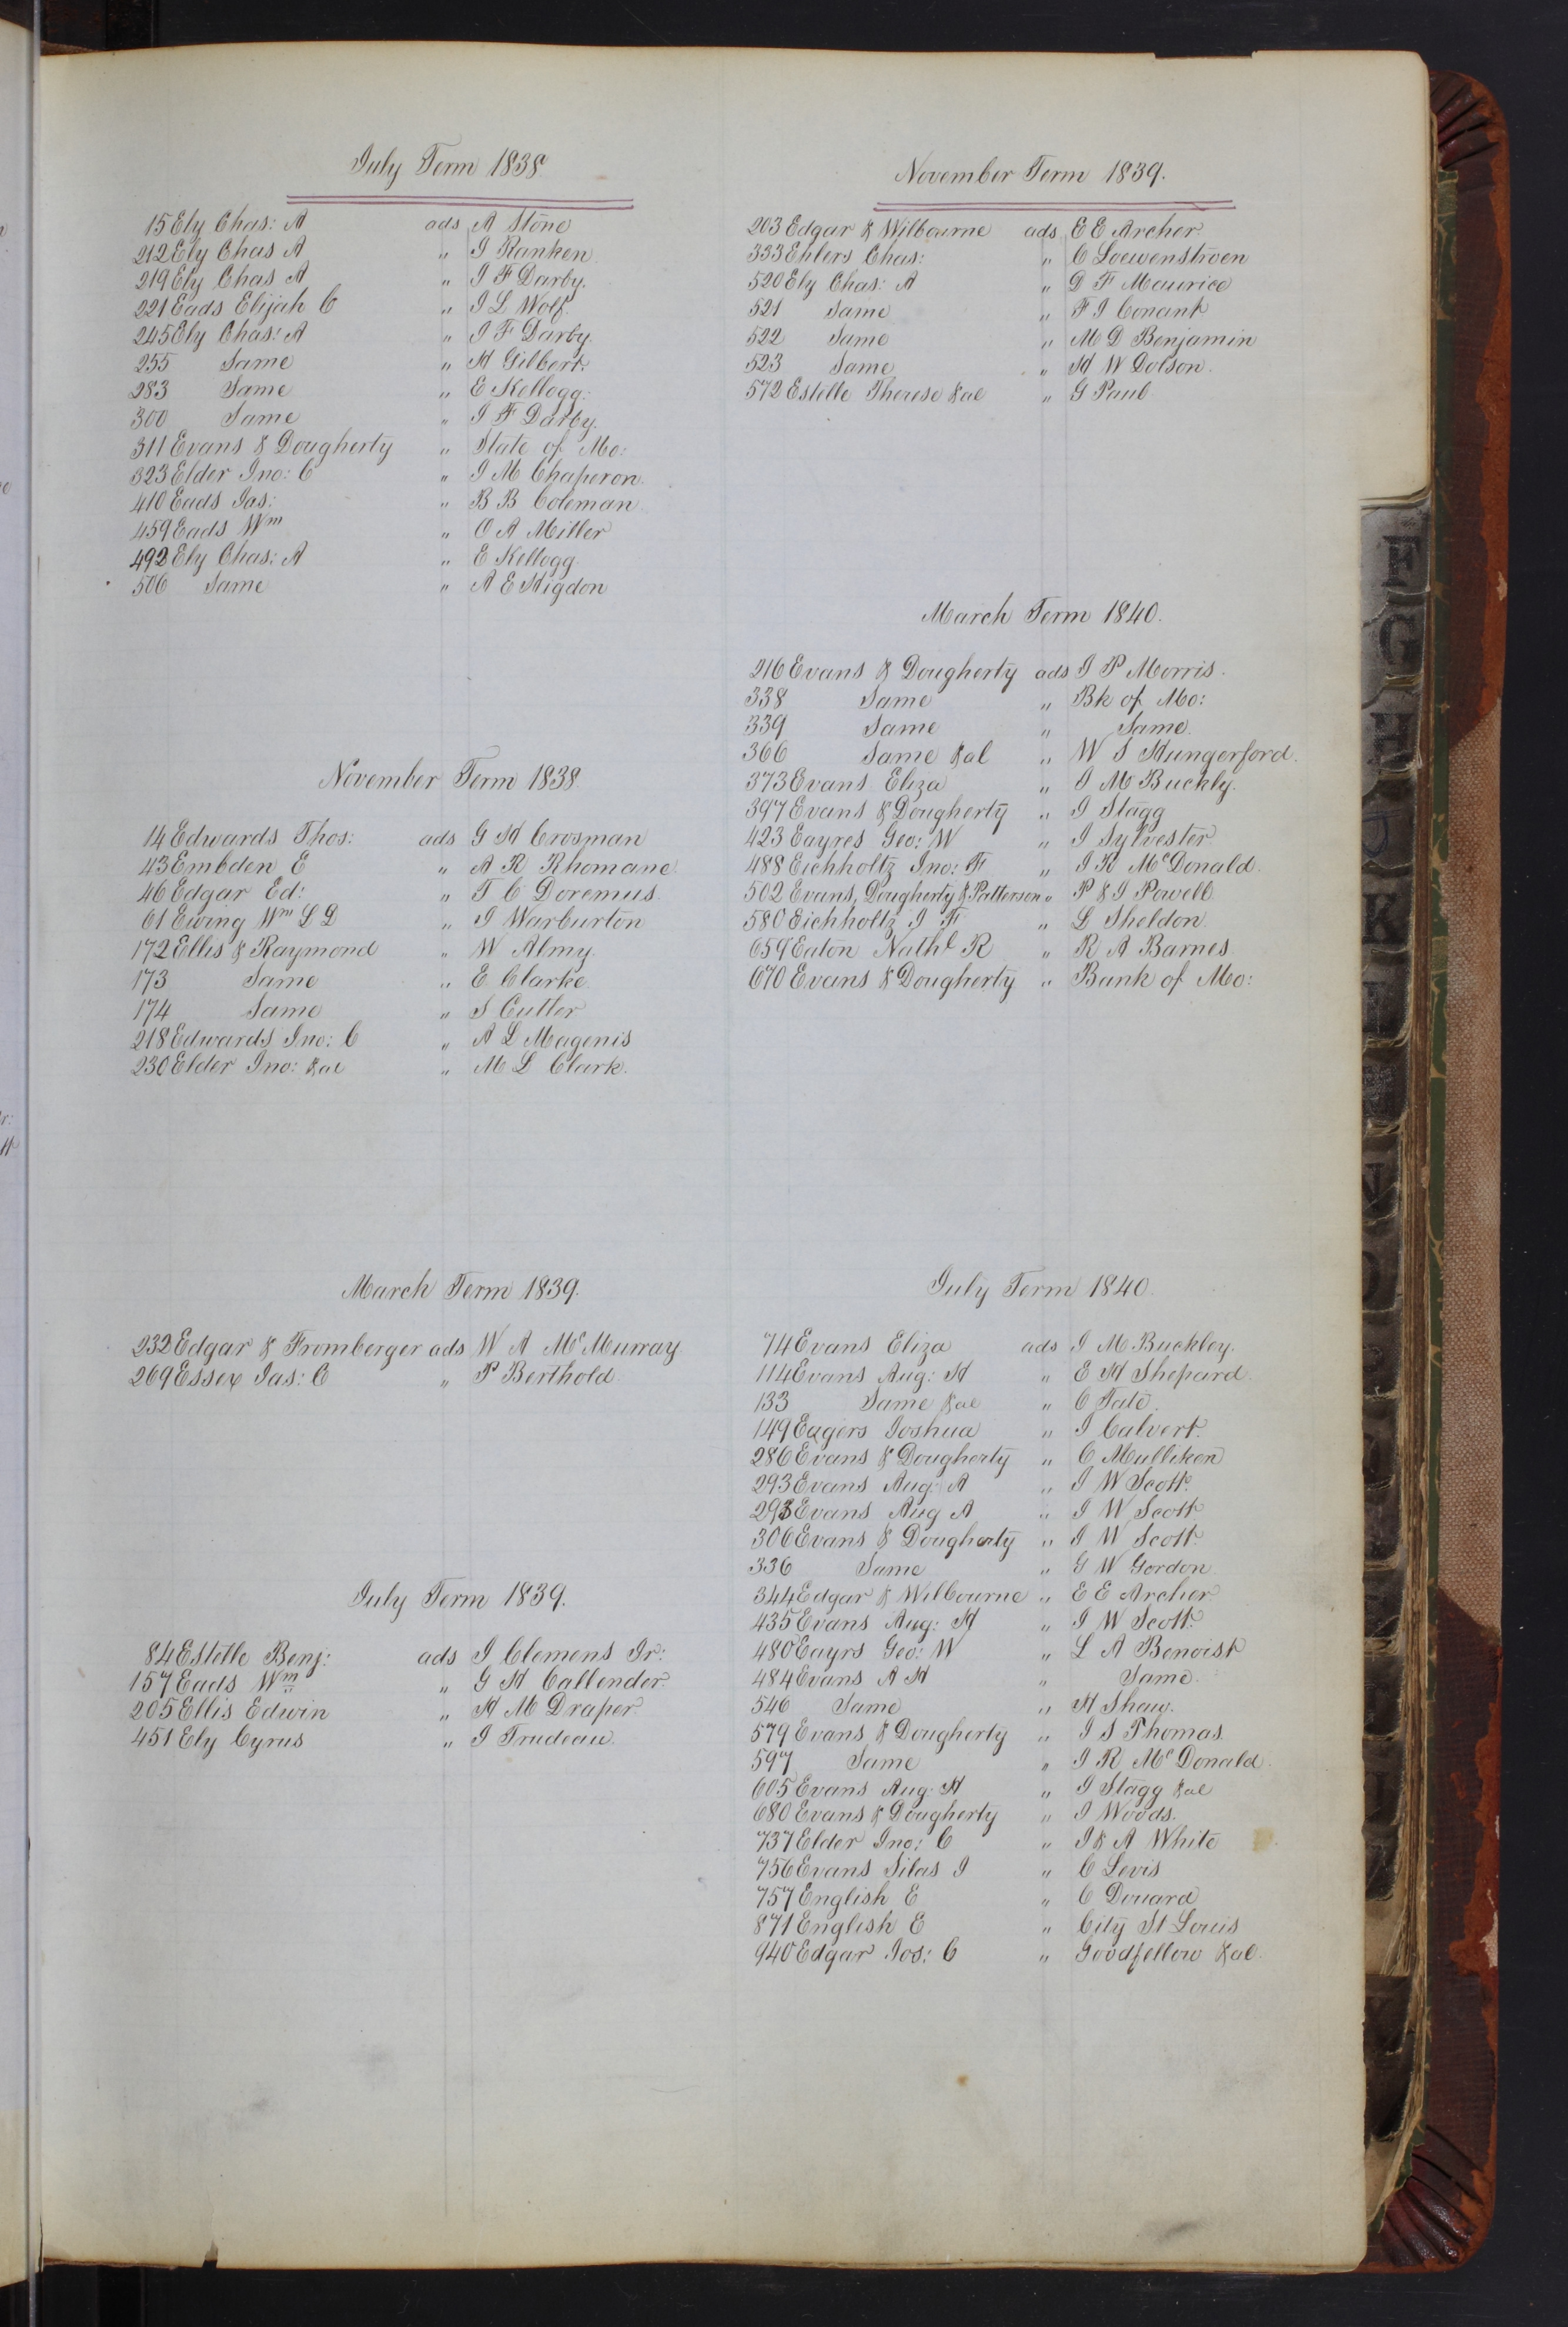 July Term 1838
15 Ely Chas: A ads A Stone
212 Ely Chas A " J Ranken
219 Ely Chas A " J F Darby.
221 Eads Elijah C " J L Wolf.
245 Ely Chas: A " J F Darby.
255 Same " H Gilbert.
283 Same " E Kellogg.
300 Same " J F Darby.
311 Evans & Dougherty " State of Mo:
323 Elder Jno: C " J M Chaperon.
410 Eads Jas: " B B Coleman.
459 Eads Wm " O A Miller
492 Ely Chas: A " E Kellogg
506 Same " A E Higdon
November Term 1838.
14 Edwards Thos: ads G H Crosman
43 Embden E " A R Rhomane
46 Edgar Ed: " T C Doremus.
61 Ewing Wm L D " J Warburton
172 Ellis & Raymond " W Almy.
173 Same " E Clarke.
174 Same " S Cutler
218 Edwards Jno: C " A L Magenis
230 Elder Jno: &al " M L Clark.
March Term 1839.
232 Edgar & Fromberger ads W A McMurray
269 Essex Jas: C " P Berthold.
July Term 1839.
84 Estelle Benj: ads J Clemens Jr:
157 Eads Wm " G H Callender.
205 Ellis Edwin " H M Draper.
451 Ely Cyrus " J Trudeau.
November Term 1839.
203 Edgar & Wilbourne ads E E Archer.
333 Ehlers Chas: " C Loewenstroen
520 Ely Chas: A " D F Maurice
521 Same " F J Conant
522 Same " M D Benjamin
523 Same " H W Dolson.
572 Estelle Therese &al " G Paul.
March Term 1840.
216 Evans & Dougherty ads J P Morris.
338 Same " Bk of Mo:
339 Same " Same.
366 Same &al " W S Hungerford.
373 Evans Eliza " J M Buckly.
397 Evans & Dougherty " J Stagg
423 Eayres Geo: W " J Sylvester
488 Eichholtz Jno: F " J R McDonald.
502 Evans, Dougherty & Patterson " P & J Powell
580 Eichholtz J F " L Sheldon.
659 Eaton Nathl R " R A Barnes.
670 Evans & Dougherty " Bank of Mo:
July Term 1840.
74 Evans Eliza ads J M Buckley.
114 Evans Aug: H " E H Shepard.
133 Same &al " C Tate.
149 Eagers Joshua " J Calvert.
286 Evans & Dougherty " C Mulliken
293 Evans Aug: A " J W Scott.
293 Evans Aug A " J W Scott.
306 Evans & Dougherty " J W Scott.
336 Same " G W Gordon.
344 Edgar & Wilbourne " E E Archer
435 Evans Aug: H " J W Scott.
480 Eayrs Geo: W " L A Benoist
484 Evans A H " Same.
546 Same " H Shaw.
579 Evans & Dougherty " J S Thomas.
597 Same " J R McDonald.
605 Evans Aug: H " J Stagg &al
680 Evans & Dougherty " J Woods.
737 Elder Jno: C " J & A White
756 Evans Silas J " C Levis
757 English E " C Douard
871 English E " City St Louis
940 Edgar Jos: C " Goodfellow &al.
F
G
H
K